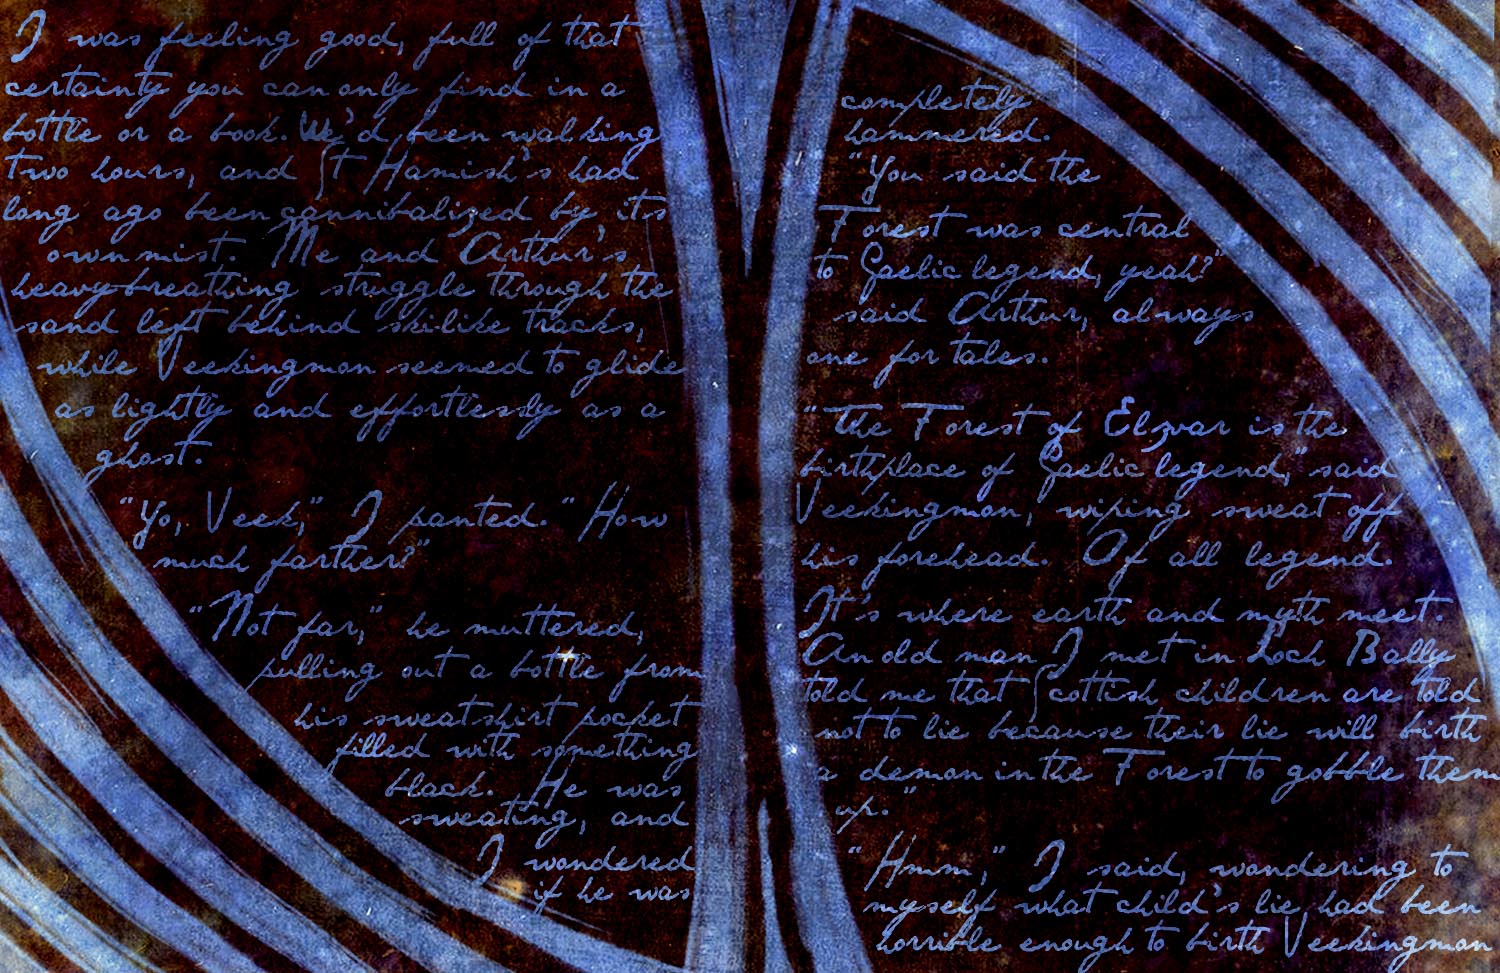 I was feeling good, full of that
certainty you can only find in a
bottle or a book. We'd been walking
two hours, and St Hamish's had
long ago been cannibalized by its
own mist. Me and Arthur's
heavy-breathing struggle through the
sand left behind ski-like tracks,
while Veekingmon seemed to glide
as lightly and effortlessly as a
ghost.
"Yo, Veek," I panted. "How
much farther?"
"Not far," he muttered,
pulling out a bottle from
his sweatshirt pocket
filled with something
black. He was
sweating, and
I wondered
if he was
completely
hammered.
"You said the
Forest was central
to Gaelic legend, yeah?"
said Arthur, always
one for tales.
"The Forest of Elzvar is the
birthplace of Gaelic legend," said
Veekingmon, wiping sweat off
his forehead. Of all legend.
It's where earth and myth meet.
An old man I met in Loch Bally
told me that Scottish children are told
not to lie because their lie will birth
a demon in the Forest to gobble them
up."
"Hmm," I said, wondering to
myself what child's lie had been
horrible enough to birth Veekingmon